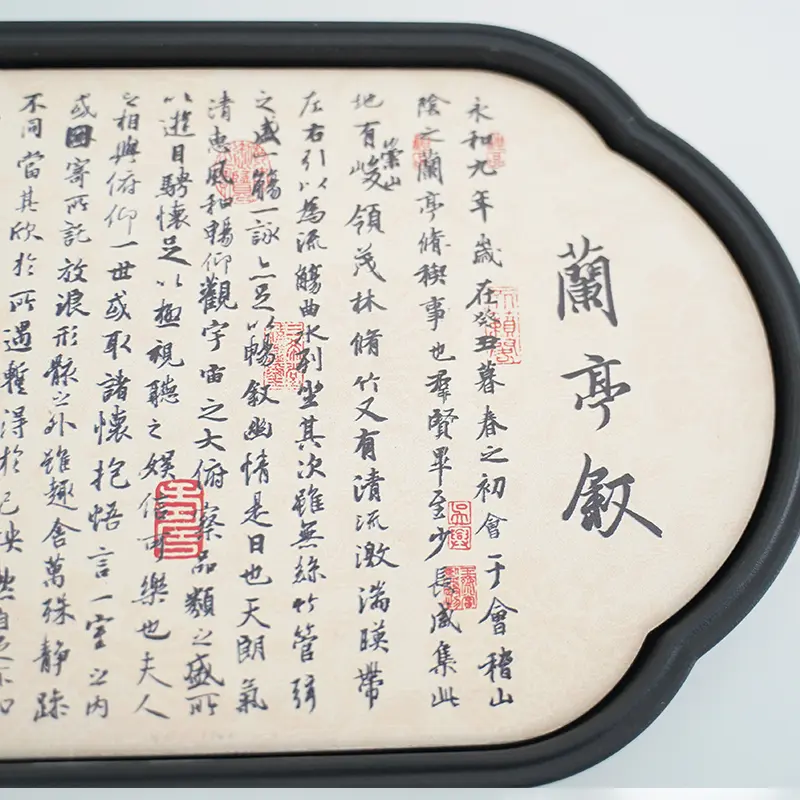 蘭亭叙
永和九年歲在癸丑暮春之初會于會稽山
陰之蘭亭脩稧事也羣賢畢至少長咸集此
地有崇山峻領茂林脩竹又有清流激湍暎帶
左右引以為流觴曲水列坐其次雖無絲竹管弦
之盛一觴一詠亦足以暢叙幽情是日也天朗氣
清惠風和暢仰觀宇宙之大俯察品類之盛所
以遊目騁懷足以極視聽之娛信可樂也夫人
之相與俯仰一世或取諸懷抱悟言一室之內
或因寄所託放浪形骸之外雖趣舍萬殊靜躁
不同當其欣於所遇暫得於己怏然自足不知